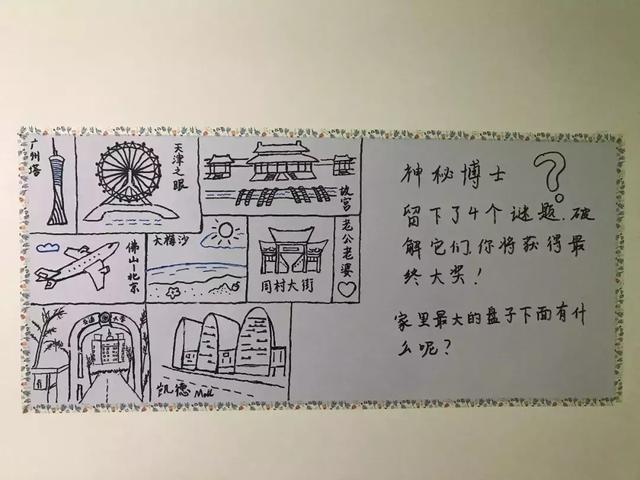 广州塔
天津之眼
故宫
佛山-北京
大梅沙
周村大街
老公老婆
大学
凯德 Mall
神秘博士 ?
留下了4个谜题,破
解它们,你将获得最
终大奖!
家里最大的盘子下面有什
么呢?